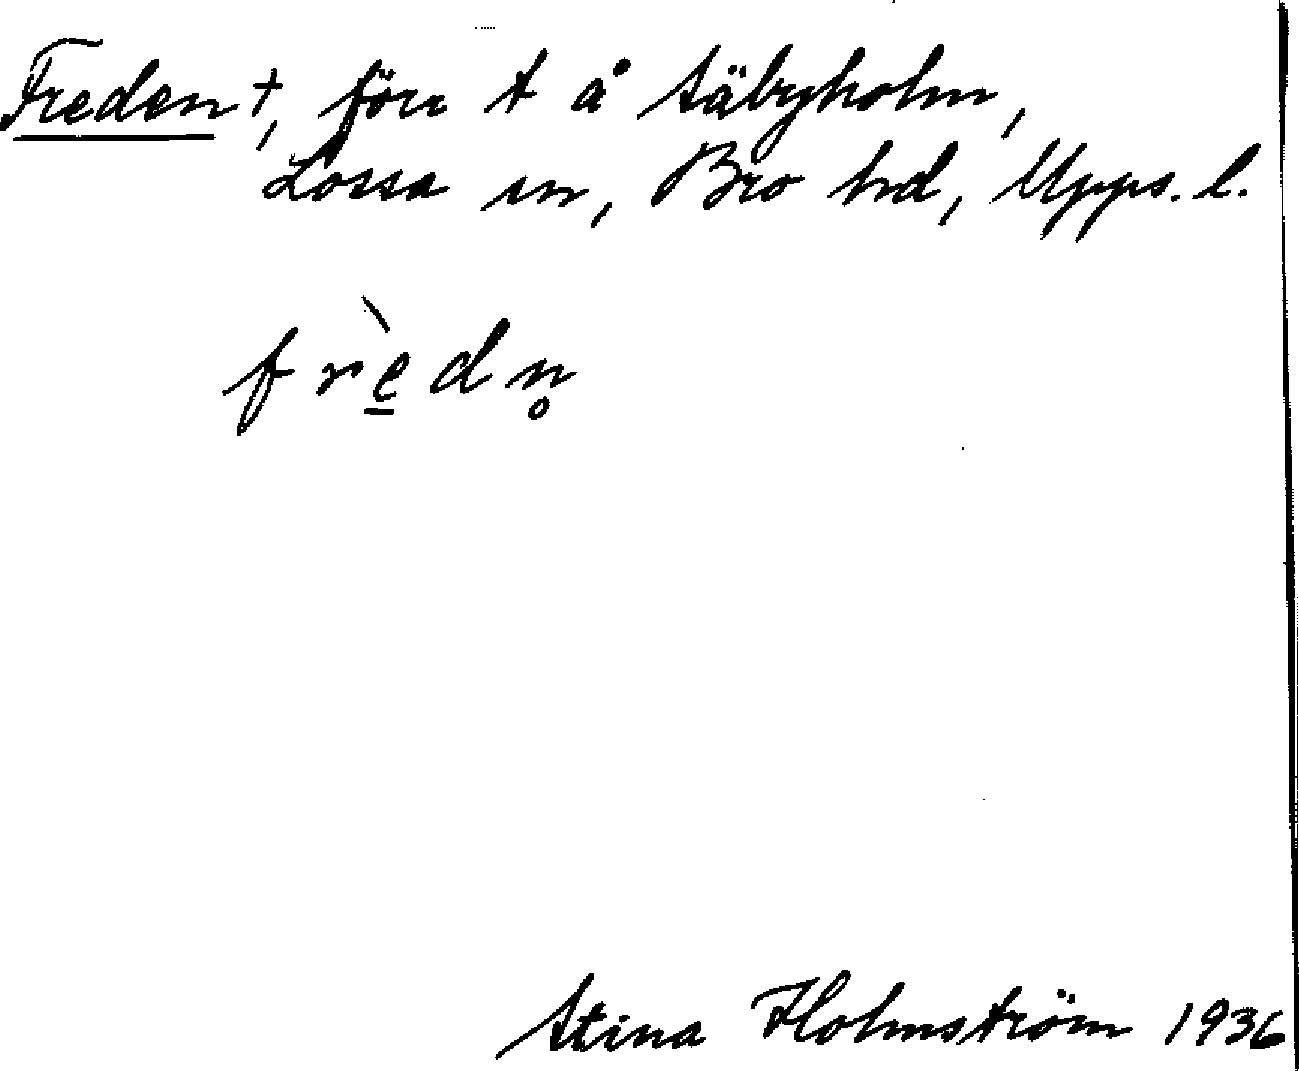 Freden †, förr t å täbyholm,
Lossa sn, Bro hd, Upps. l.
frè̲dn̥
Stina Holmström 1936